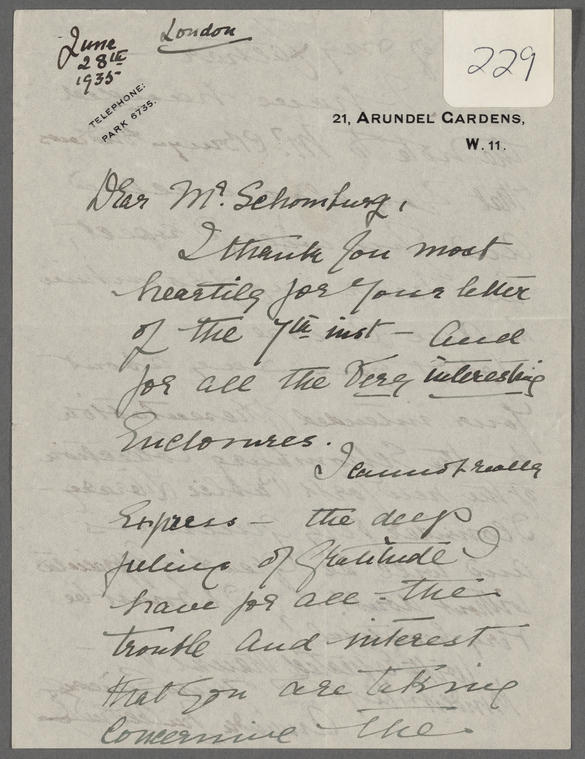 London
June
28th
1935
229
TELEPHONE:
PARK 6735.
21, ARUNDEL GARDENS,
W. 11.
Dear Mr. Schomburg,
I thank you most
heartily for your letter
of the 7th inst — and
for all the very interesting
Enclosures.
I cannot really
Express — the deep
feeling of Gratitude I
have for all the
trouble and interest
that you are taking
Concerning the